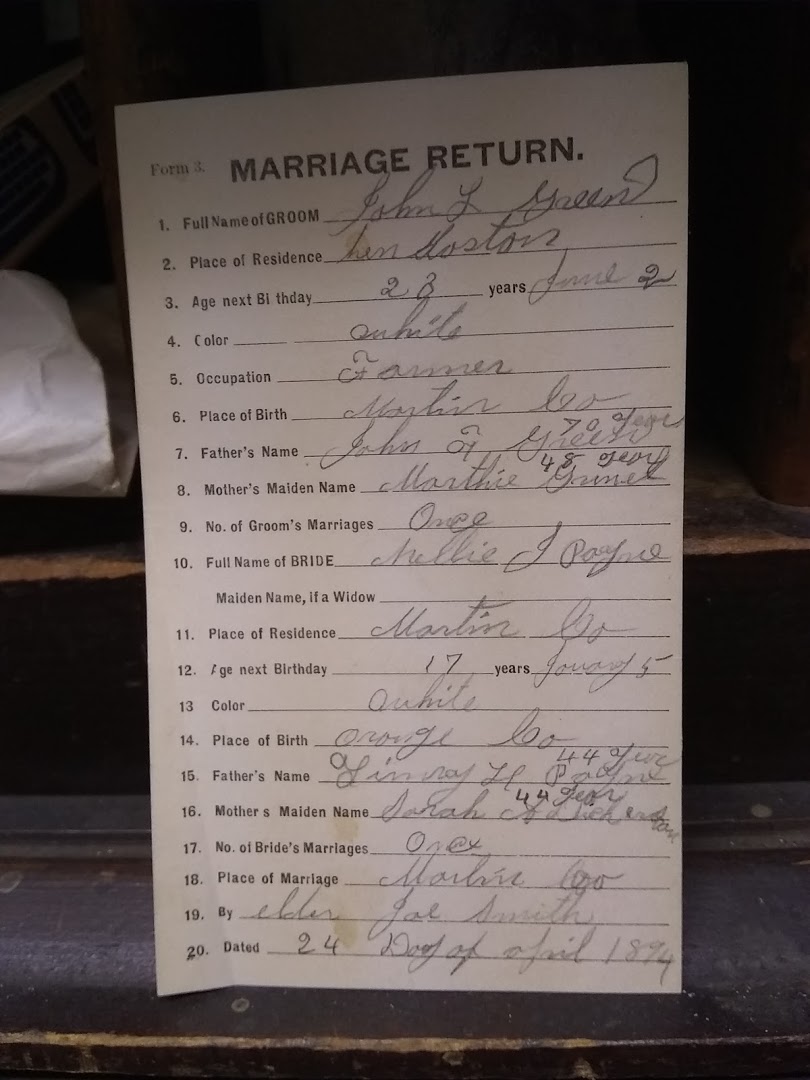 Form 3.
MARRIAGE RETURN.
1. Full Name of GROOM John L Green
2. Place of Residence
3. Age next Bi thday 23 years June 2
4. Color white
5. Occupation Farmer
6. Place of Birth Martin Co
70 year
7. Father's Name John F Green
48 year
8. Mother's Maiden Name Marthie
9. No. of Groom's Marriages Once
10. Full Name of BRIDE Nellie J Payne
Maiden Name, if a Widow
11. Place of Residence Martin Co
12. Age next Birthday 17 years 5
13 Color white
14. Place of Birth orange Co
44 year
15. Father's Name H Payne
44 year
16. Mother s Maiden Name Sarah
17. No. of Bride's Marriages
18. Place of Marriage Martin Co
19. By elder Joe Smith
20. Dated 24 Day of april 1894